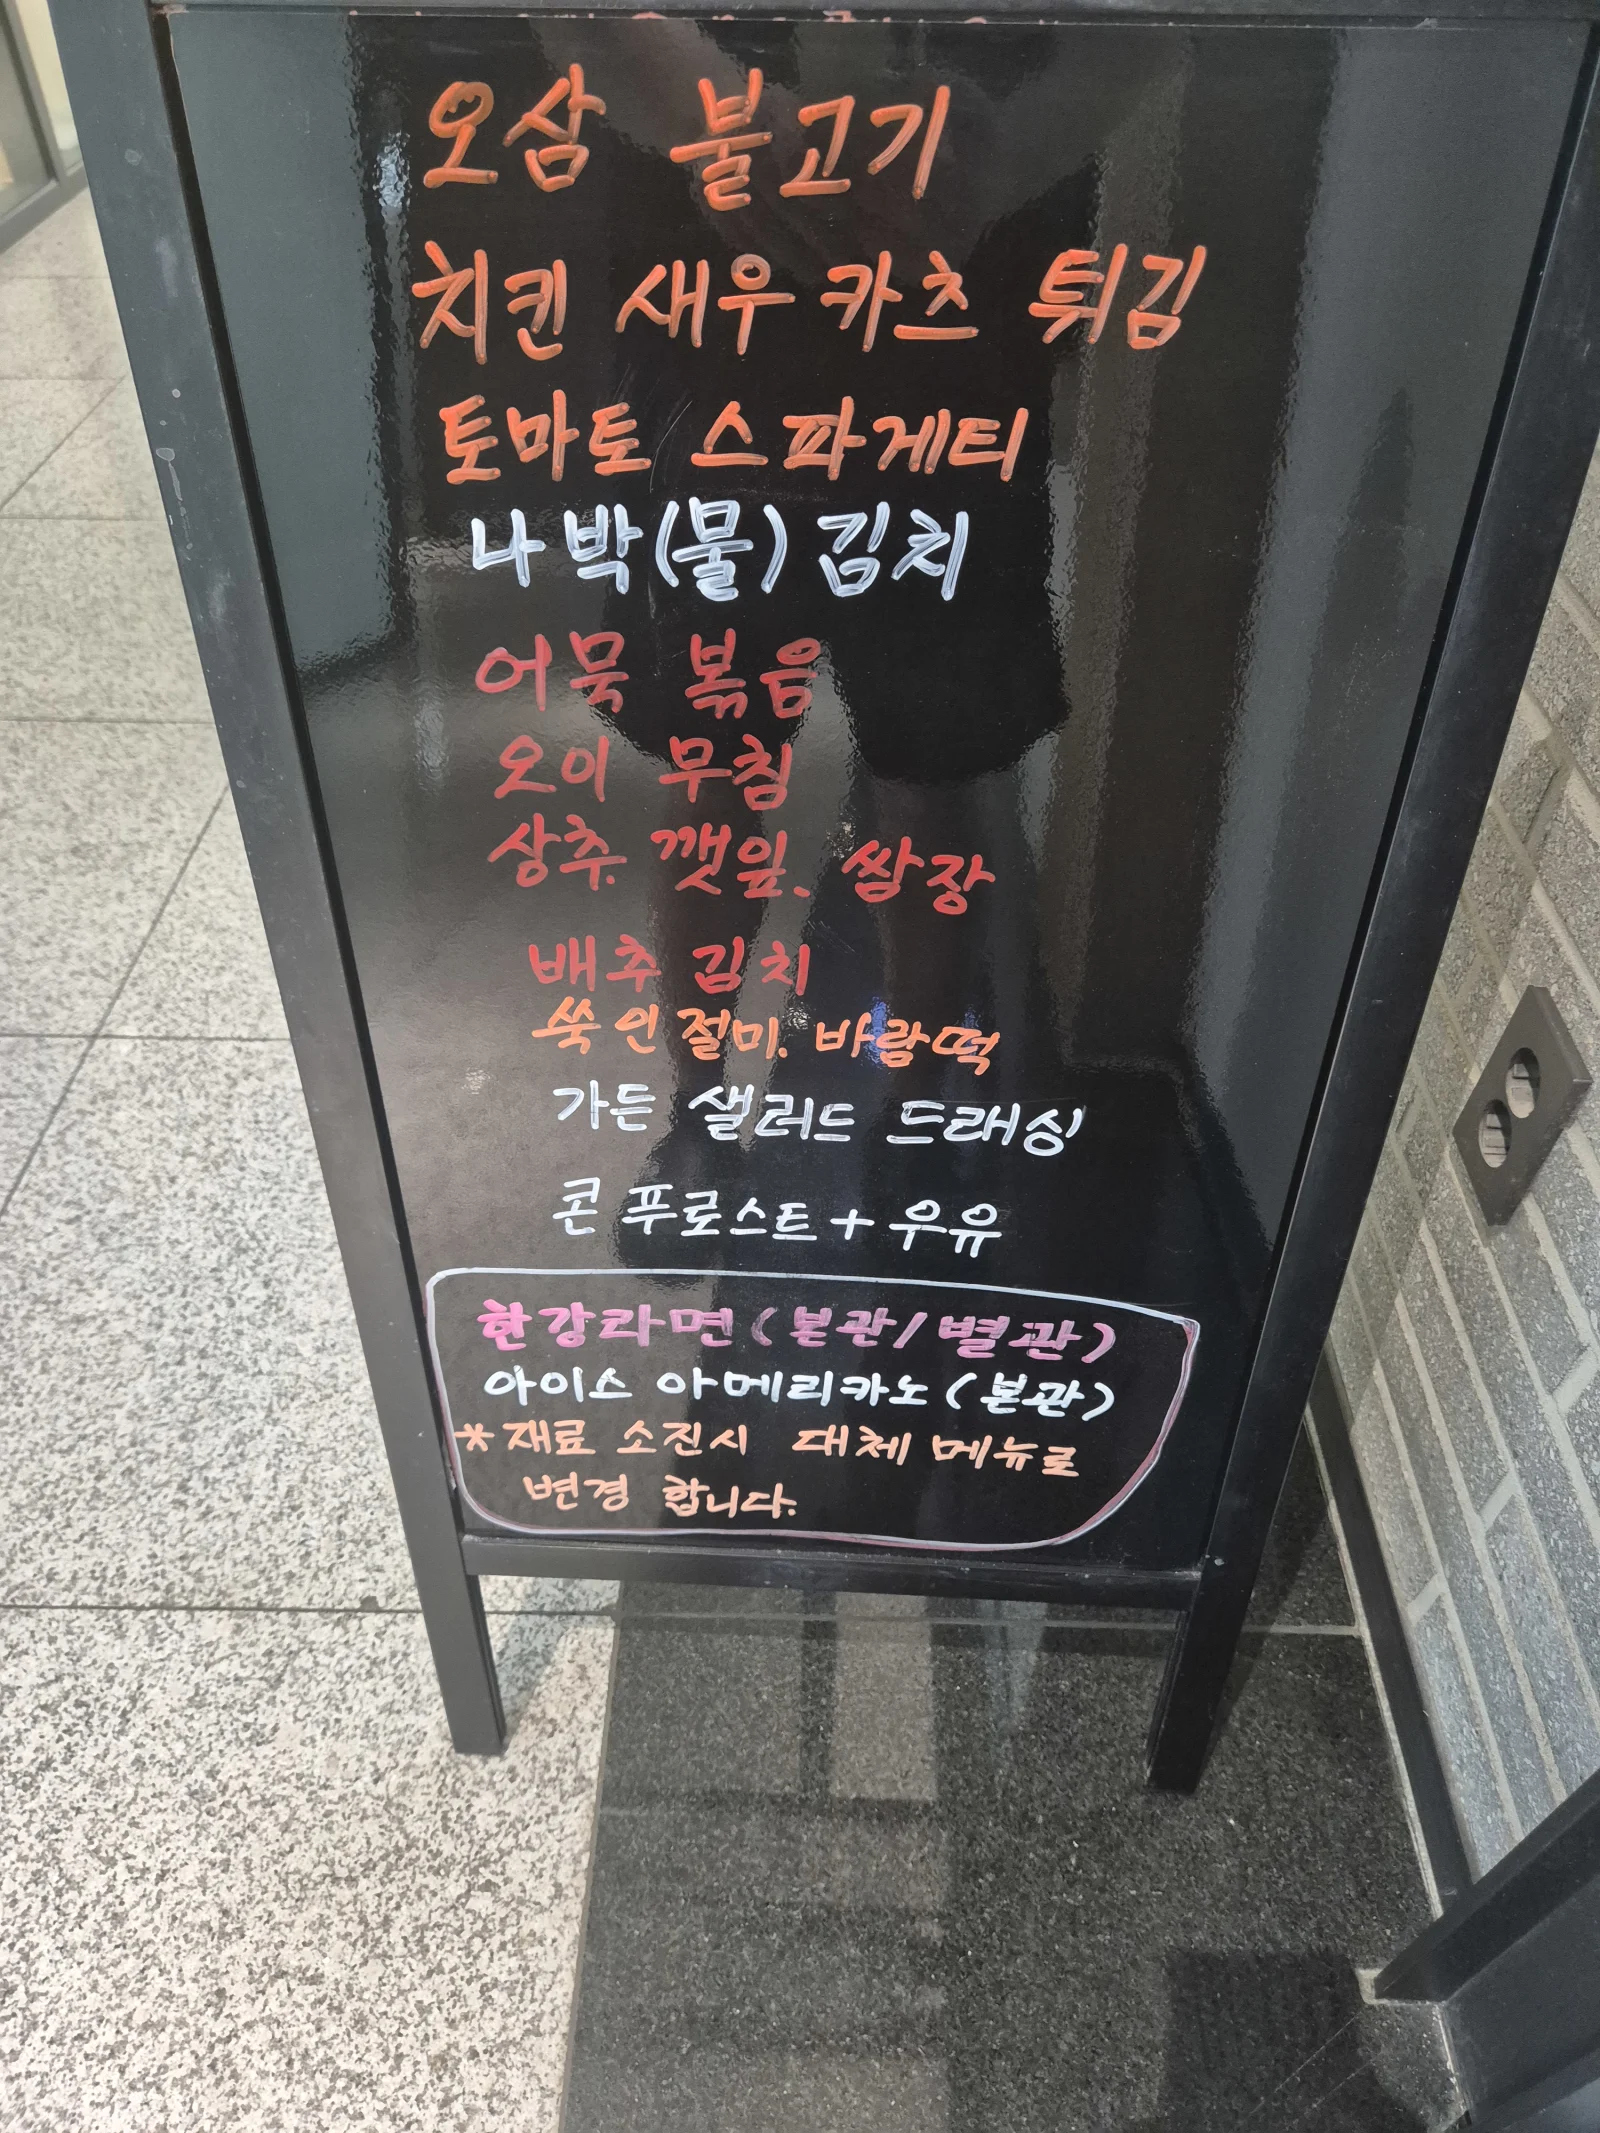 오삼 불고기
치킨 새우 카츠 튀김
토마토 스파게티
나박(물) 김치
어묵 볶음
오이 무침
상추. 깻잎. 쌈장
배추 김치
쑥인절미. 바람떡
가든 샐러드 드래싱
콘푸로스트 + 우유
한강라면 (본관/별관)
아이스 아메리카노 (본관)
*재료 소진시 대체 메뉴로
변경 합니다.